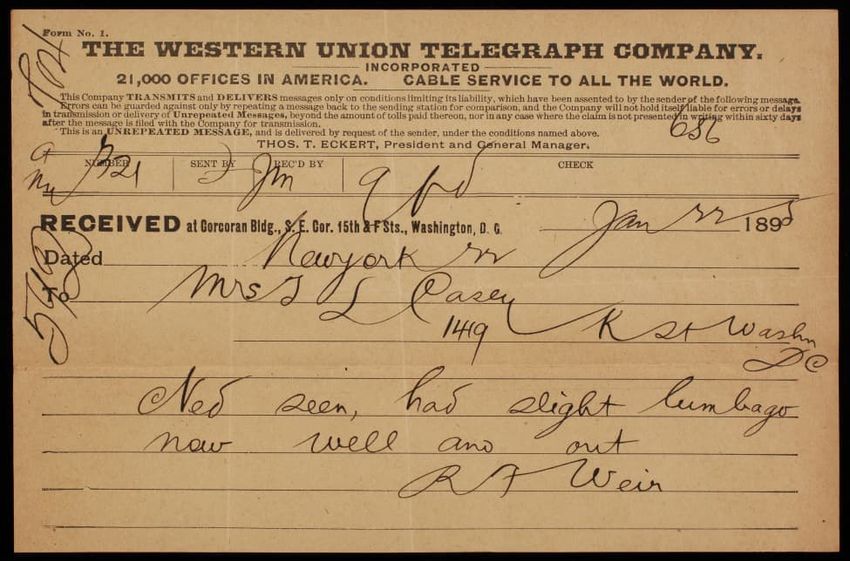 Form No. 1.
THE WESTERN UNION TELEGRAPH COMPANY.
INCORPORATED
21,000 OFFICES IN AMERICA. CABLE SERVICE TO ALL THE WORLD.
This Company TRANSMITS and DELIVERS messages only on conditions limiting its liability, which have been assented to by the sender of the following message.
Errors can be guarded against only by repeating a message back to the sending station for comparison, and the Company will not hold itself liable for errors or delays
in transmission or delivery of Unrepeated Messages, beyond the amount of tolls paid thereon, nor in any case where the claim is not presented in writing within sixty days
after the message is filed with the Company for transmission.
This is an UNREPEATED MESSAGE, and is delivered by request of the sender, under the conditions named above.
THOS. T. ECKERT, President and General Manager.
NUMBER SENT BY REC'D BY CHECK
9 pd
RECEIVED at Corcoran Bldg., S. E. Cor. 15th & F Sts., Washington, D. C. Jan 22 1895
Dated Newyork 22
To Mrs T L Casey
1419 K St Washn
DC
Ned seen, had slight lumbago
now well and out
R F Weir